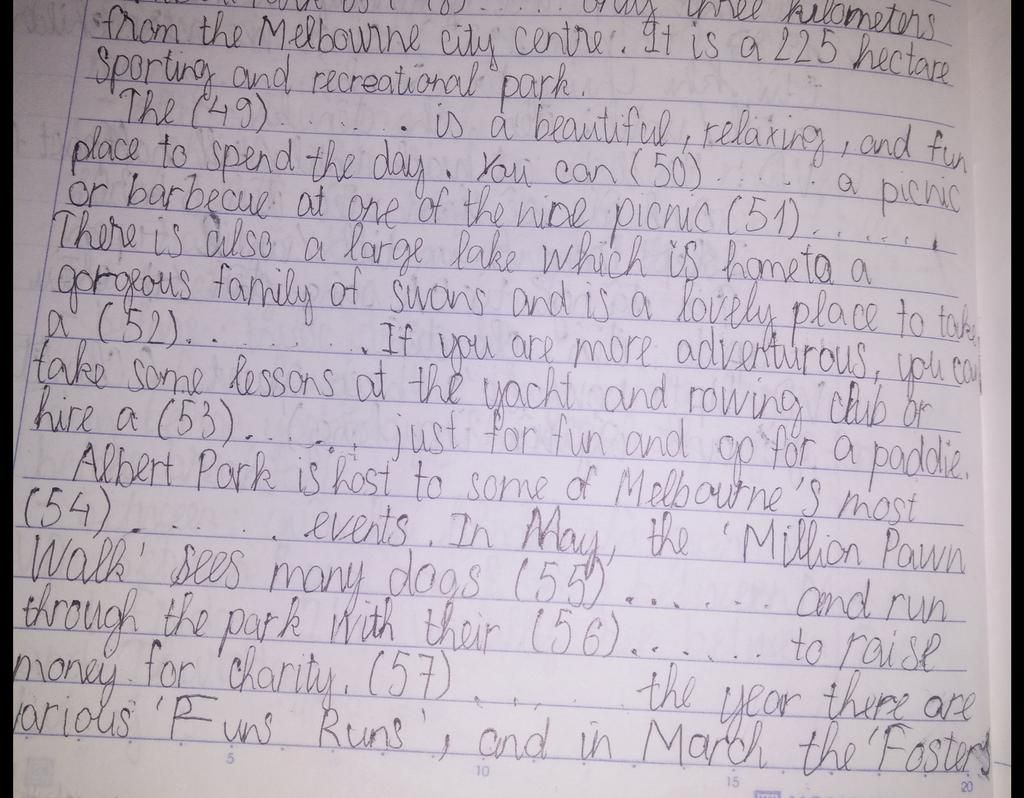 only three kilometers
from the Melbourne city centre. It is a 225 hectare
sporting and recreational park.
The (49) ...... is a beautiful, relaxing, and fun
place to spend the day. You can (50) ..... a picnic
or barbecue at one of the nine picnic (51) .......
There is also a large lake which is hometo a
gorgeous family of swans and is a lovely place to take
a (52)......... If you are more adventurous, you can
take some lessons at the yacht and rowing club or
hire a (53)....... just for fun and go for a paddie.
Albert Park is host to some of Melbourne's most
(54)...... events. In May, the 'Million Pawn
Walk' sees many dogs (55)...... and run
through the park with their (56)....... to raise
money for charity. (57)..... the year there are
arious 'Funs Runs', and in March the 'Fosters
5
10
15
20